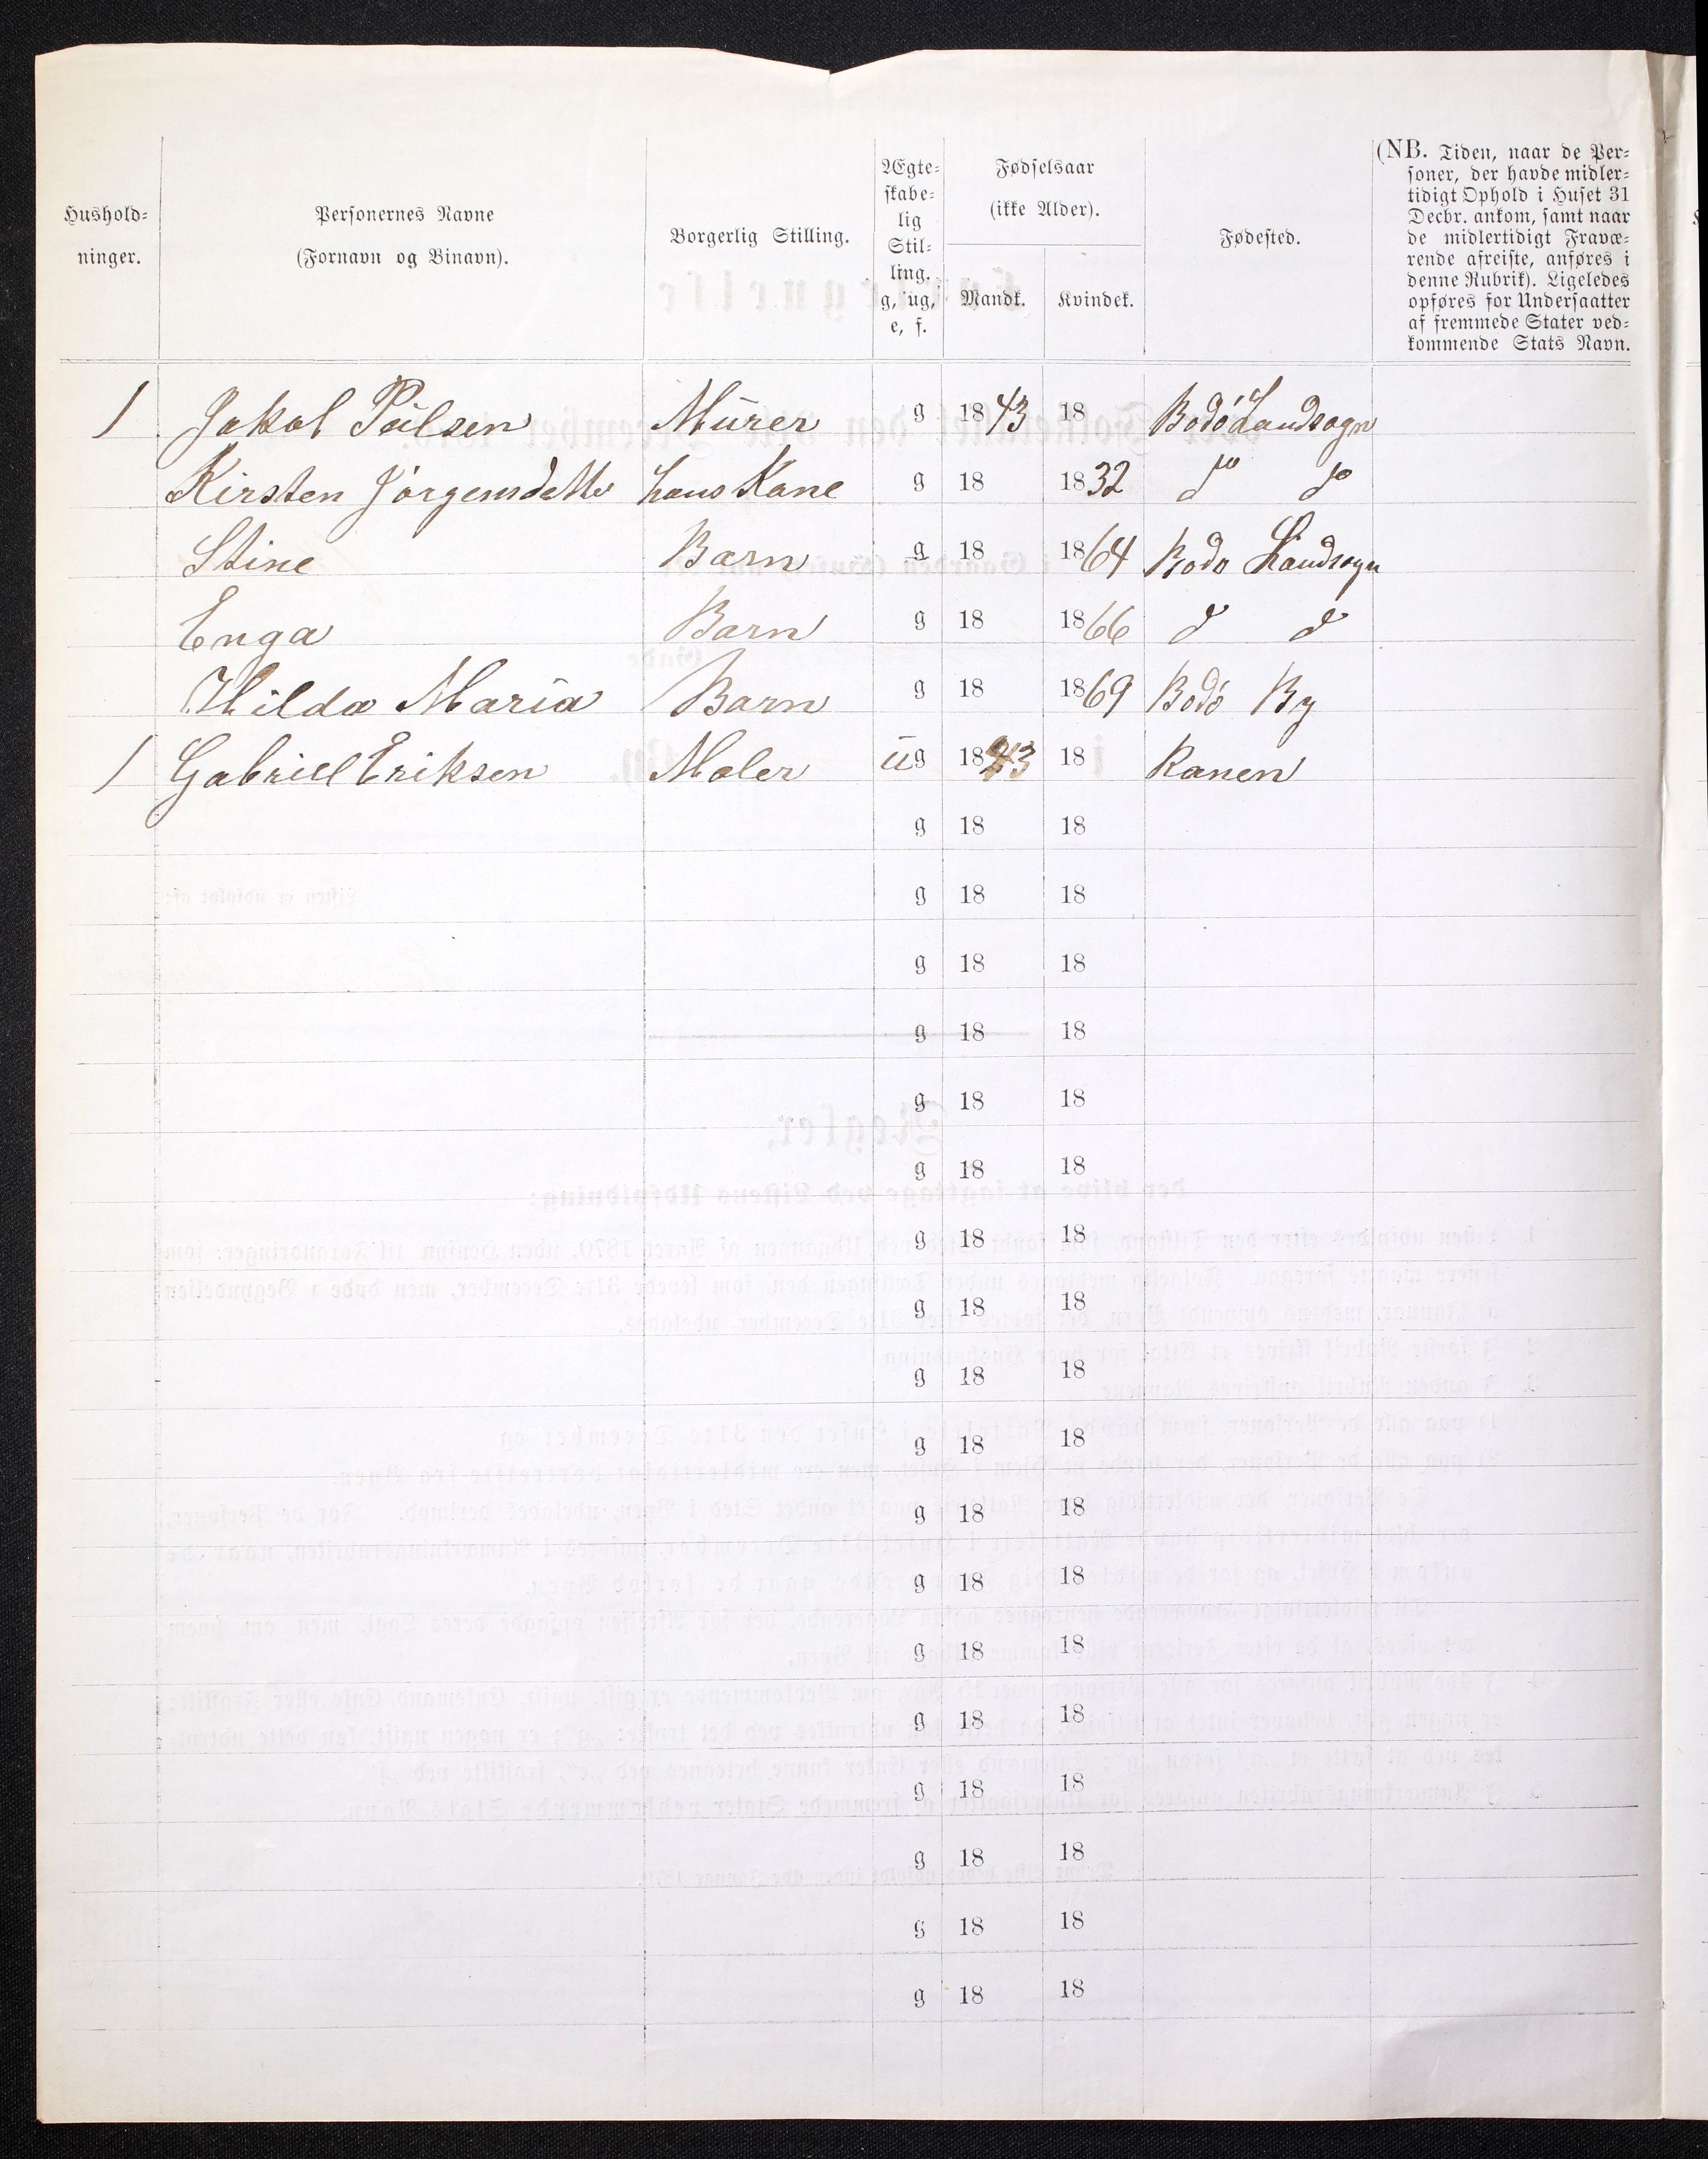 Hushold-
ninger.
Personernes Navne
(Fornavn og Binavn).
Borgerlig Stilling.
Ægte-
skabe-
lig
Stil-
ling.
g, ug,
e, f.
Fødselsaar
(ikke Alder).
Mandk.
Kvindek.
Fødested.
(NB. Tiden, naar de Per-
soner, der havde midler-
tidigt Ophold i Huset 31
Decbr. ankom, samt naar
de midlertidigt Fravæ-
rende afreiste, anføres i
denne Rubrik). Ligeledes
opføres for Undersaatter
af fremmede Stater ved-
kommende Stats Navn.
1 Jakob Pålsen Murer g 1843 18 Bodö Landsogn
Kirsten Jörgensdatter hans Kone g 18 1832 do do
Stine Barn g 18 1864 Bodo Landsogn
Enga Barn g 18 1866 d d
Hilda Maria Barn g 18 1869 Bodö By
1 Gabriel Eriksen Maler ug 1843 18 Ranen
g 18 18
g 18 18
g 18 18
g 18 18
g 18 18
g 18 18
g 18 18
g 18 18
g 18 18
g 18 18
g 18 18
g 18 18
g 18 18
g 18 18
g 18 18
g 18 18
g 18 18
g 18 18